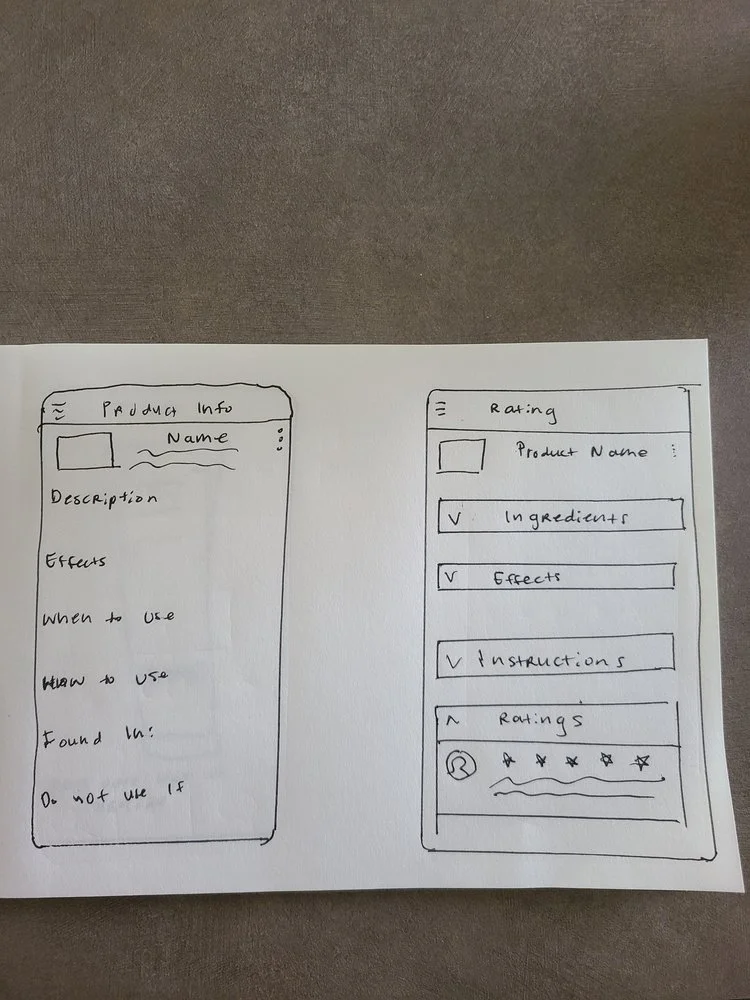 Product Info
Name
Description
Effects
When to use
How to use
Found In:
Do not use If
Rating
Product Name
Ingredients
Effects
Instructions
Ratings